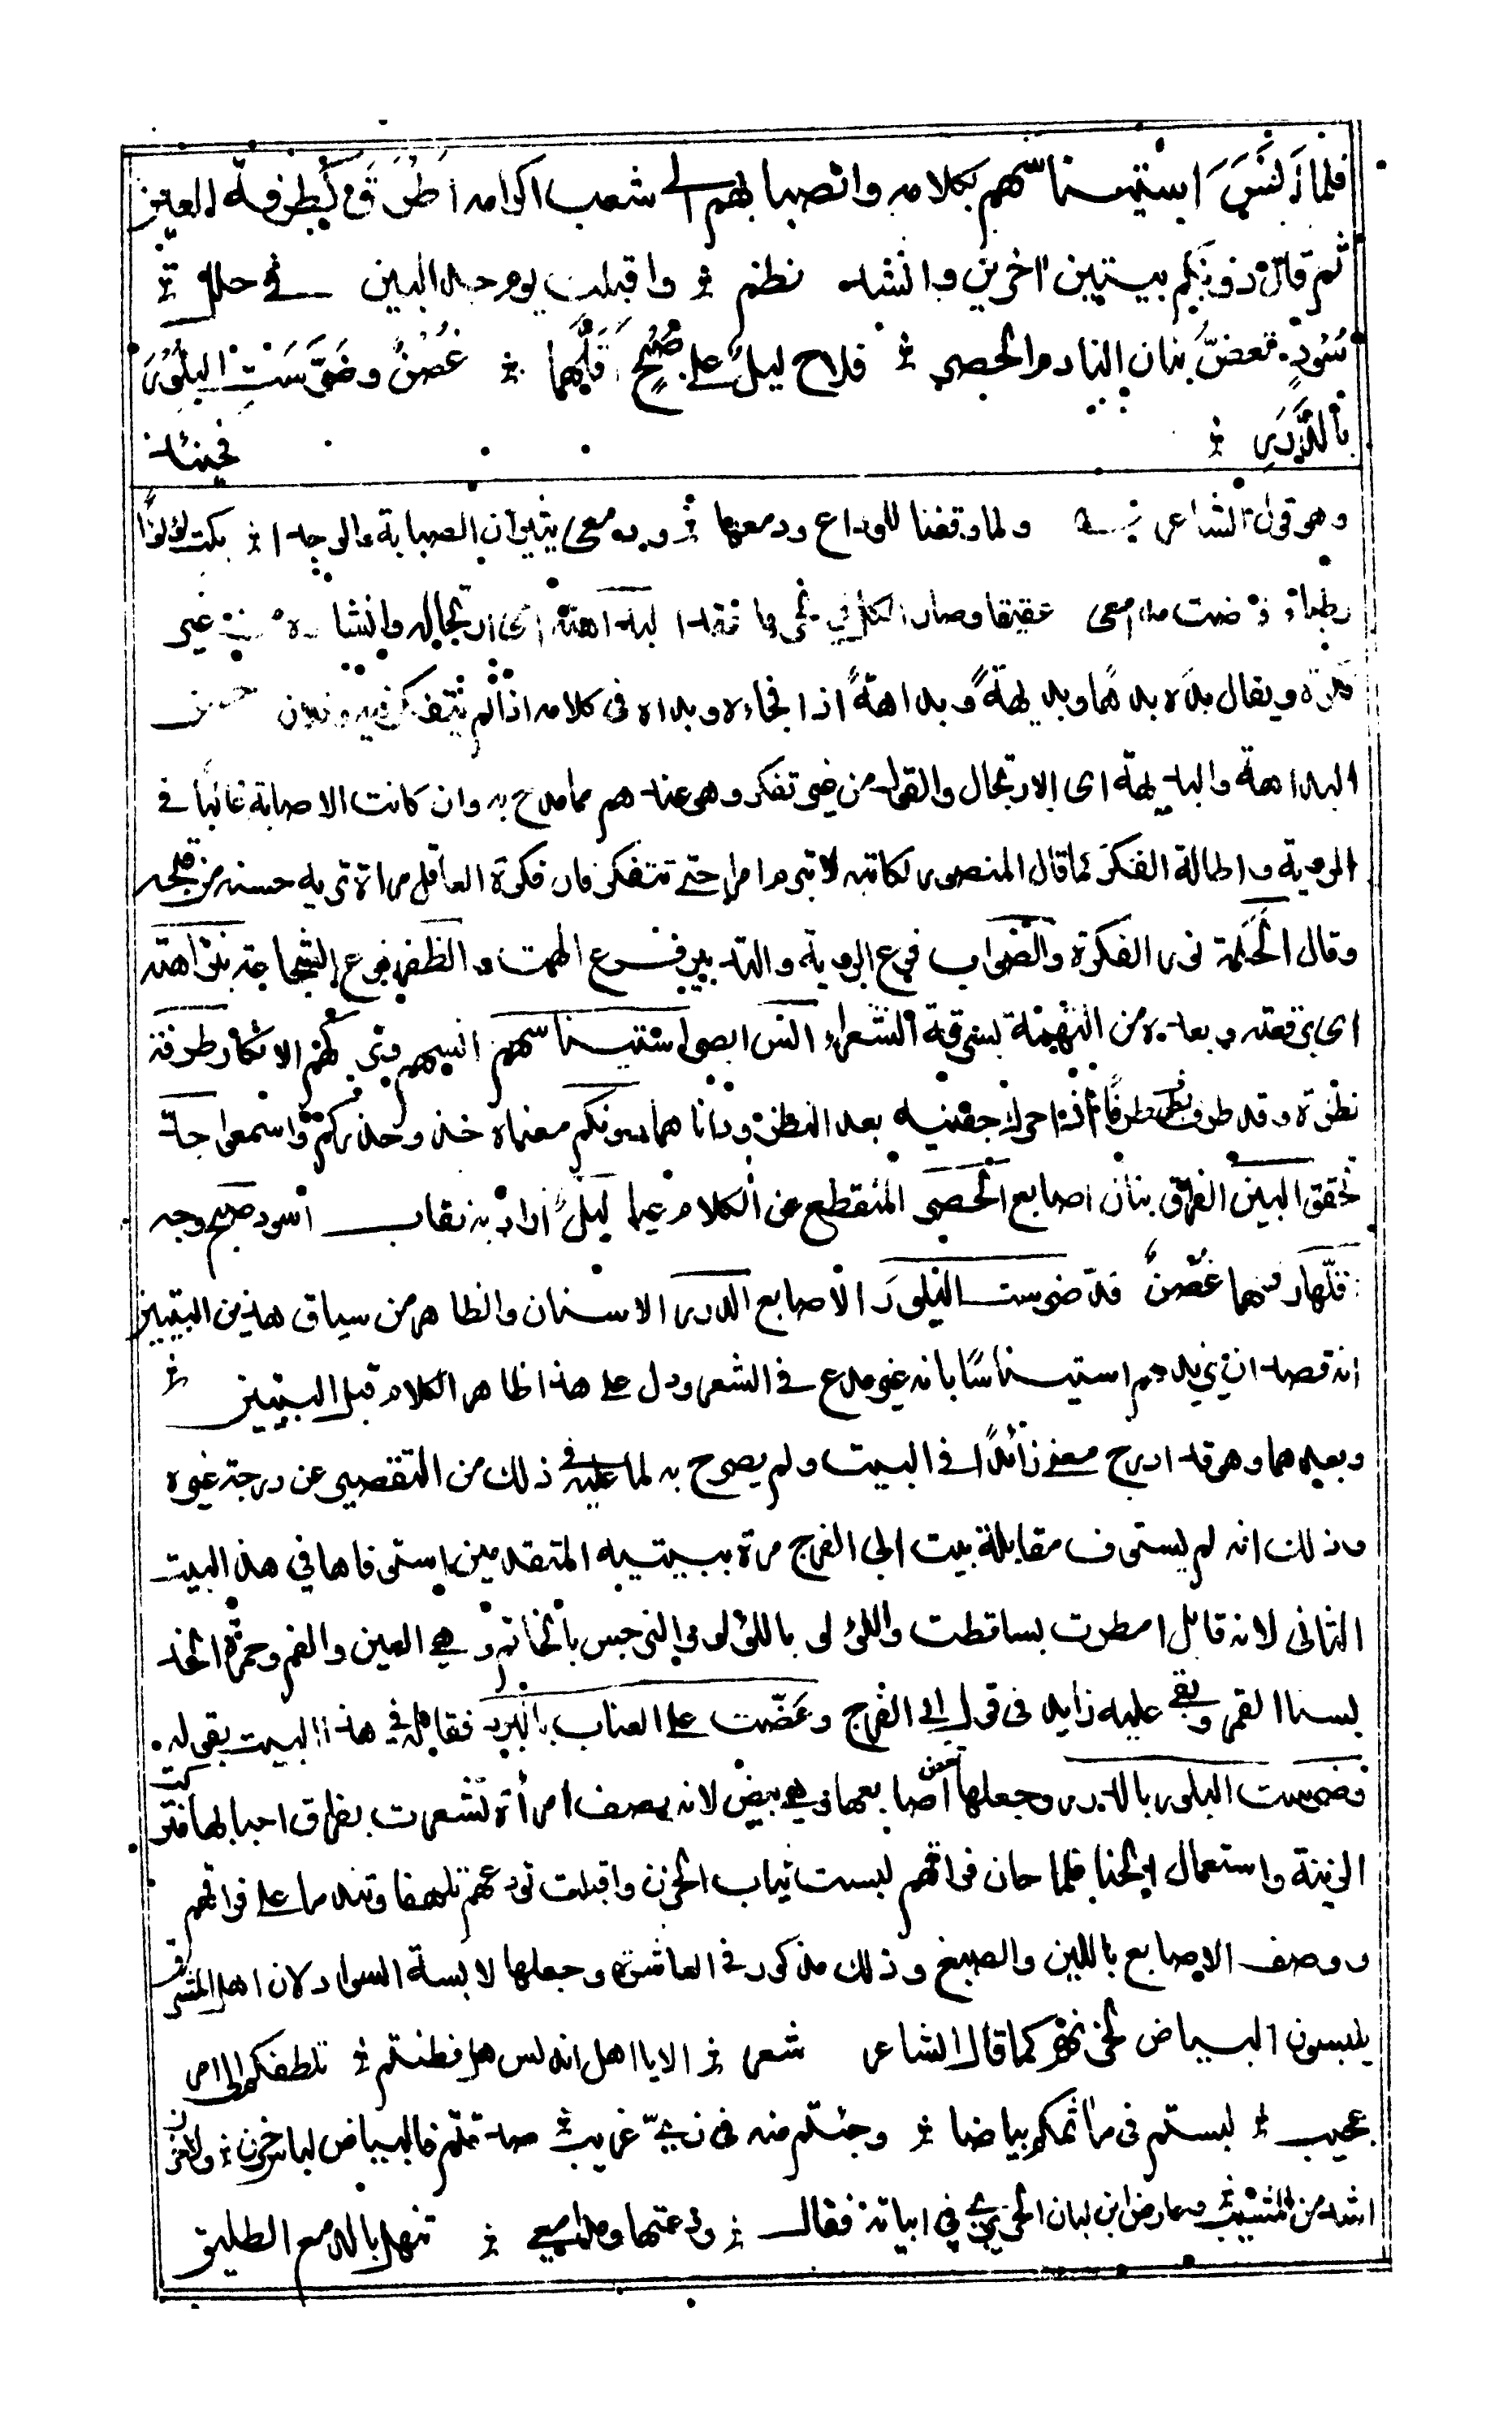 فلما آنس استيناسهم بكلامه وانصبابهم الى شعب اكرامه اطرق كطرفة العين
ثم قال دونكم بيتين اخرين وانشد نظم واقبلت يوم جد البين في حلل
سود تعض بنان النادم الحصر فلاح ليل على صبح اقلهما غصن وضرست البلور
بالدرر فحينئذ
وهو قول الشاعر ولما وقفنا للوداع ودمعها ودمعي يثيران الصبابة والوجدا بكت لؤلؤا
رطبا ففاضت مدامعي عقيقا وصار الكل في نحرها عقدا لبداهته اى ارتجاله وانشاده من غير
فكرة ويقال بده بدها وبديهة وبداهة اذا فجاءه وبداه فى كلامه اذا لم يتفكر فيه وفلان حسن
البداهة والبديهة اى الارتجال والقول من غير تفكر وهو عندهم مما مدح به وان كانت الاصابة غالبا فى
الروية واطالة الفكر كما قال المنصور لكاتبه لا تبرم امرا حتى تتفكر فان فكرة العاقل مراة تريه حسنه من قبحه
وقال الحكمة نور الفكرة والصواب فرع الروية والتدبير فرع الهمت والظفر فرع الشجاعة بنزاهته
اى برفعته وبعده من التهمة بسرقة الشعراء انس ابصر استيناسهم انسهم وترك الانكار طرفة
نظرة وقد طرف يطرف طرفا اذا حرك جفنيه بعد النظر ودانا هما دونكم معناه خذ وحذركم واسمعوا جد
تحقق البين الفراق بنان اصابع الحصر المنقطع عن الكلام عيا ليل اراد به نقاب اسود صبح وجه
اقلهما رفعهما غصن قد ضرست البلور الاصابع الدرر الاسنان والظاهر من سياق هذين البيتين
انه قصد ان يزيدهم استيناسا بانه غير مدع في الشعر ودل على هذا ظاهر الكلام قبل البيتين
وبعدهما وهو قد ادرج معنى زائدا في البيت ولم يصرح به لما عليه في ذلك من التقصير عن درجة غيره
وذلك انه لم يستوف مقابلة بيت ابى الفرج مرة ببيتيه المتقدمين استوفاها في هذا البيت
الثانى لانه قابل امطرت بساقطت واللؤلؤ باللؤلؤ والنرجس بالخاتم وهي العين والفم وحمرة الخد
بسنا القمر وبقي عليه زايد فى قول ابي الفرج وعضت على العناب بالبرد فقابله في هذا البيت بقوله
وضرست البلور بالدرر وجعلها اصابعها وهي بيض لانه يصف امرأة تشعرت بفراق احبابها فتركت
الزينة واستعمال الحنا فلما حان فراقهم لبست ثياب الحزن واقبلت تودعهم تلهفا وتندما على فراقهم
ووصف الاصابع باللين والصبغ وذلك مذكور في العاشرة وجعلها لابسة السواد لان اهل المشرق
يلبسون البياض لحزنهم كما قال الشاعر شعر الا يا اهل اندلس هل فطنتم تلطفكم الى امر
عجيب لبستم فى ماتمكم بياضا وجئتم منه فى زي غريب صدقتم فالبياض لباس حزن ولا حزن
اشد من المشيب وعارض ابن لبان الحريري في ابياته فقال ودعتها ومدامعي تنهل بالدمع الطليق